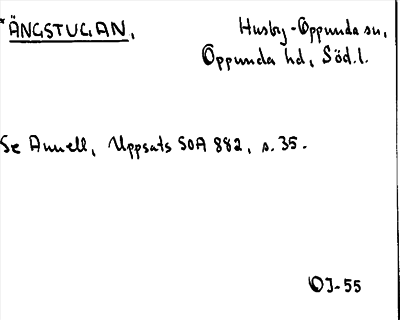 *ÄNGSTUGAN.
Husby-Oppunda sn,
Oppunda hd, Söd.l.
Se Annell, Uppsats SOA 882, s. 35.
OJ-55